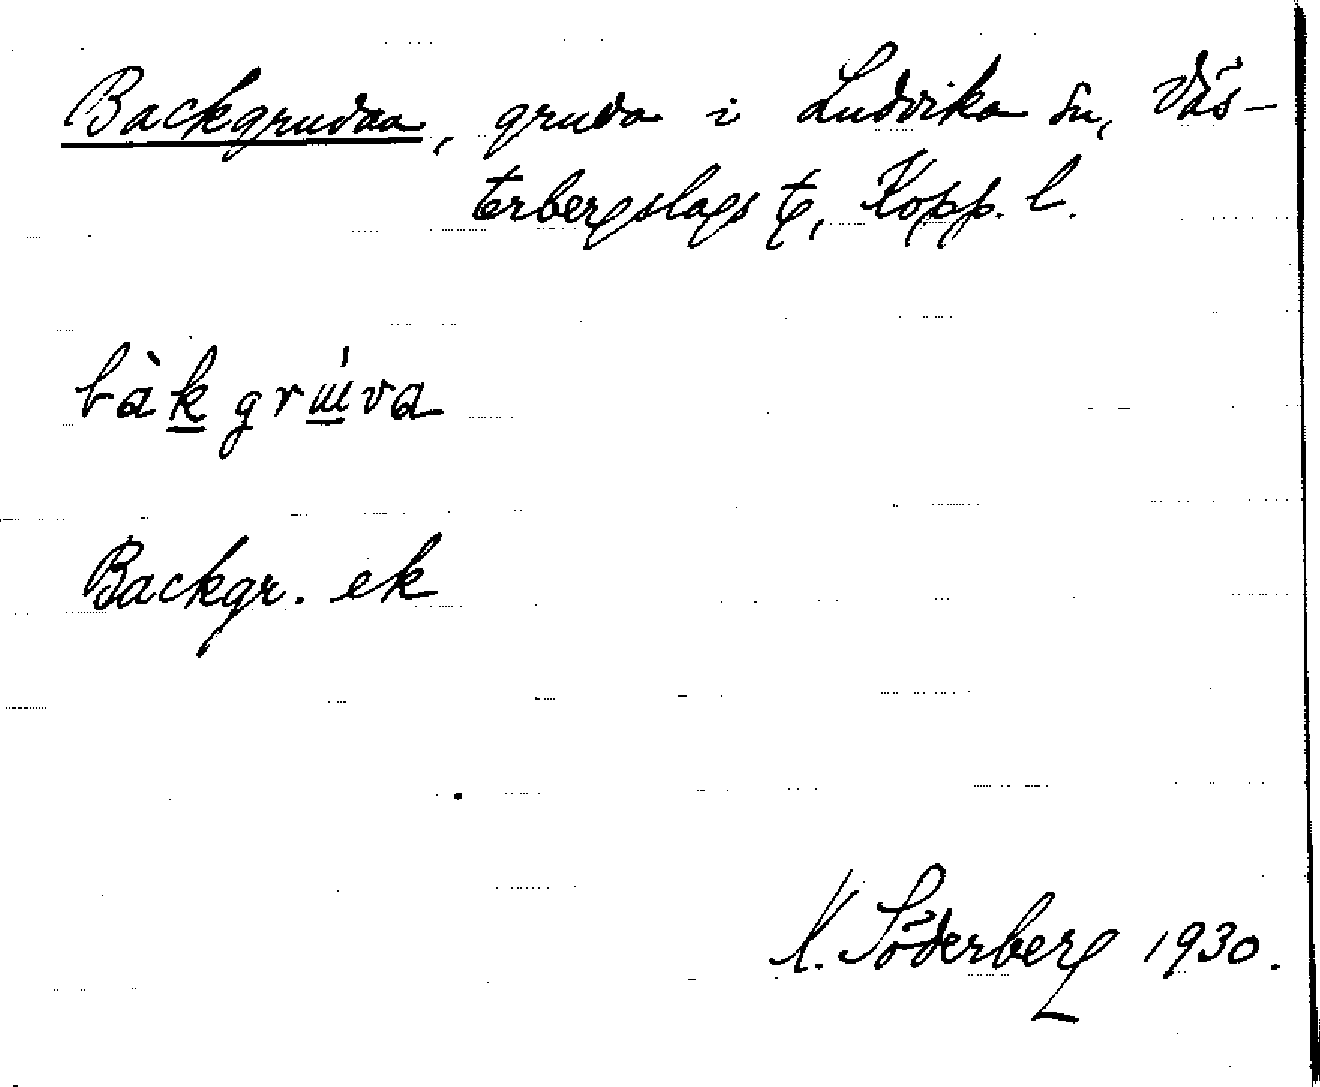 Backgruvan, gruva i Ludvika sn, Väs-
terbergslags t, Kopp. l.
bàk grɯ́va
Backgr. ek
K. Söderberg 1930.